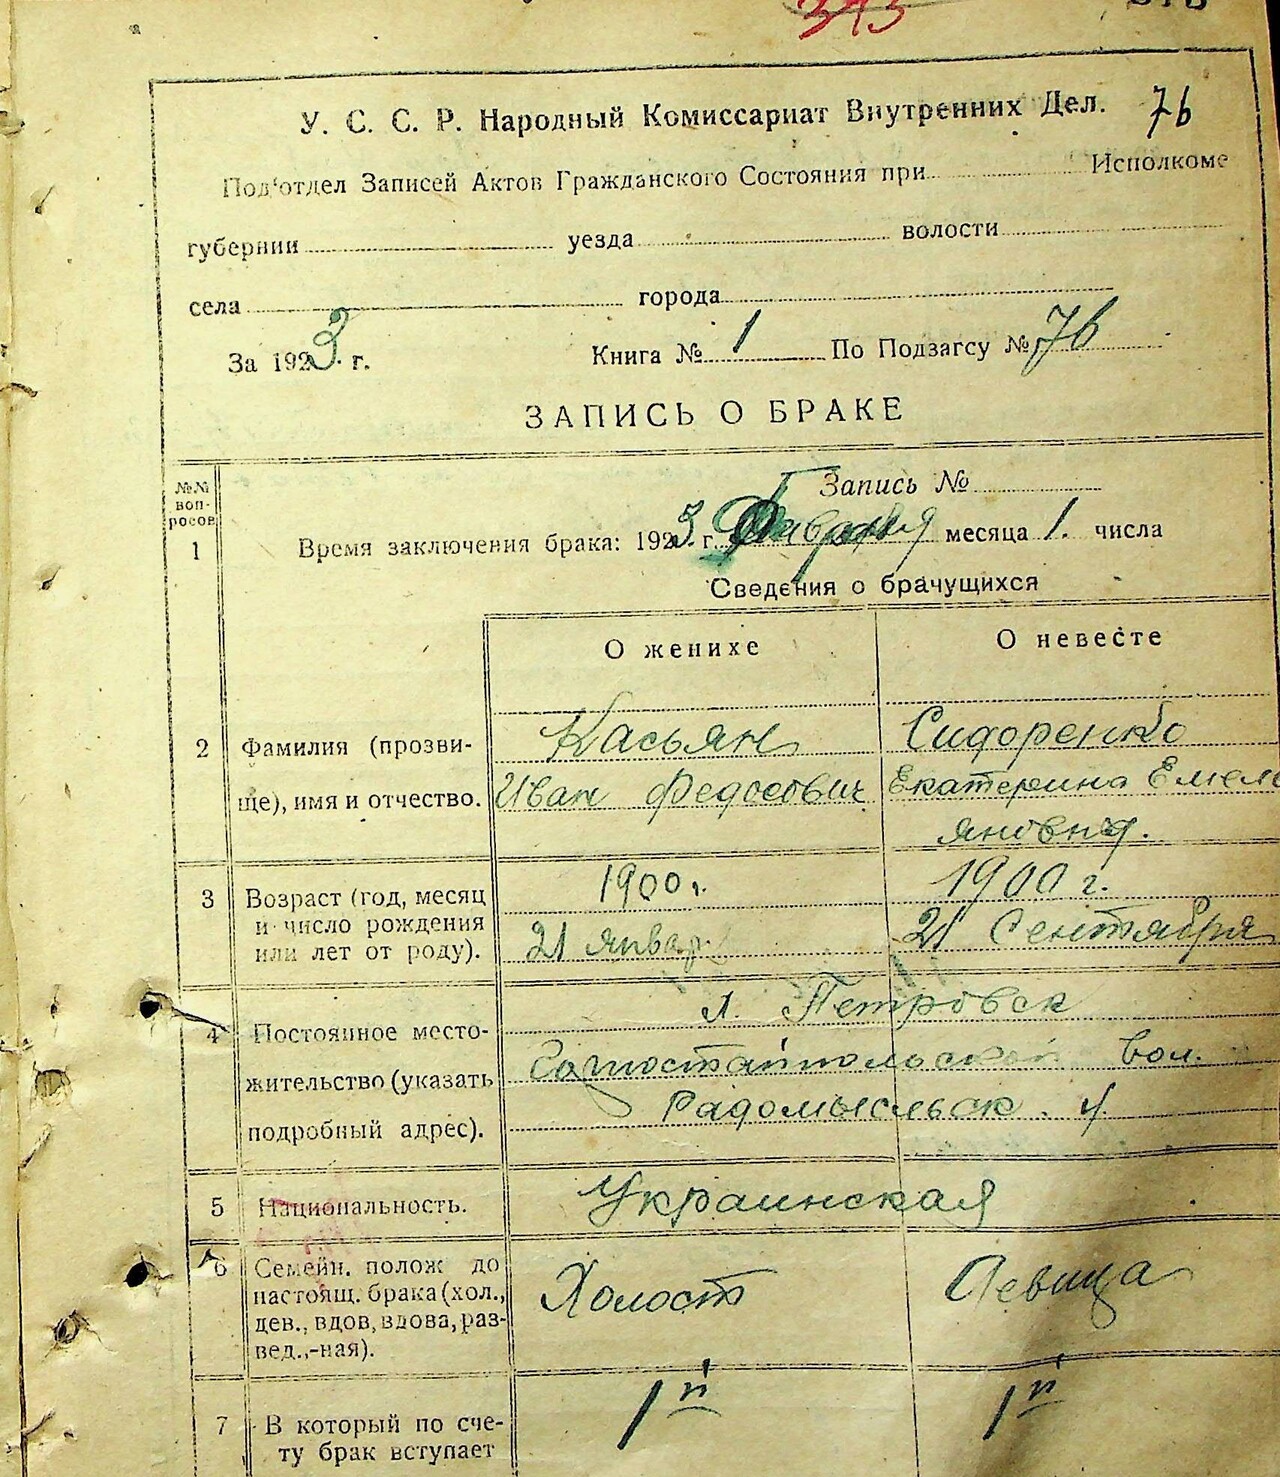 343
У. С. С. Р. Народный Комиссариат Внутренних Дел. 76
Под'отдел Записей Актов Гражданского Состояния при Исполкоме
губернии уезда волости
села города
За 1923 г. Книга № 1 По Подзагсу № 76
ЗАПИСЬ О БРАКЕ
№№ вопросов
Запись №
1 Время заключения брака: 1923 г. Февраля месяца 1. числа
Сведения о брачущихся
О женихе О невесте
2 Фамилия (прозви- Касьян Сидоренко
ще), имя и отчество. Иван Федосович Екатерина Емель
яновна.
3 Возраст (год, месяц 1900 г. 1900 г.
и число рождения
или лет от роду). 21 январ 21 Сентября
4 Постоянное место- Петровск
жительство (указать вол.
подробный адрес). Радомысльск. у.
5 Национальность. Украинская
6 Семейн. полож до
настоящ. брака (хол., Холост Девица
дев., вдов, вдова, раз-
вед.,-ная).
7 В который по сче- 1й 1й
ту брак вступает